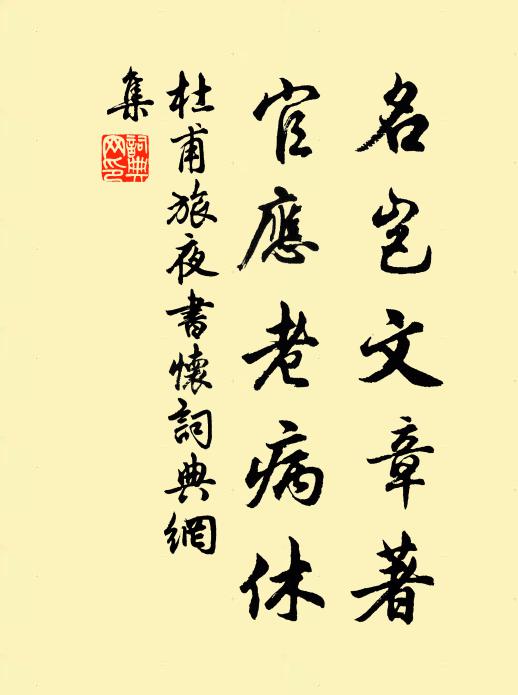 名岂文章著
官應老病休
杜甫旅夜書懷詞典網
集
詞典网印